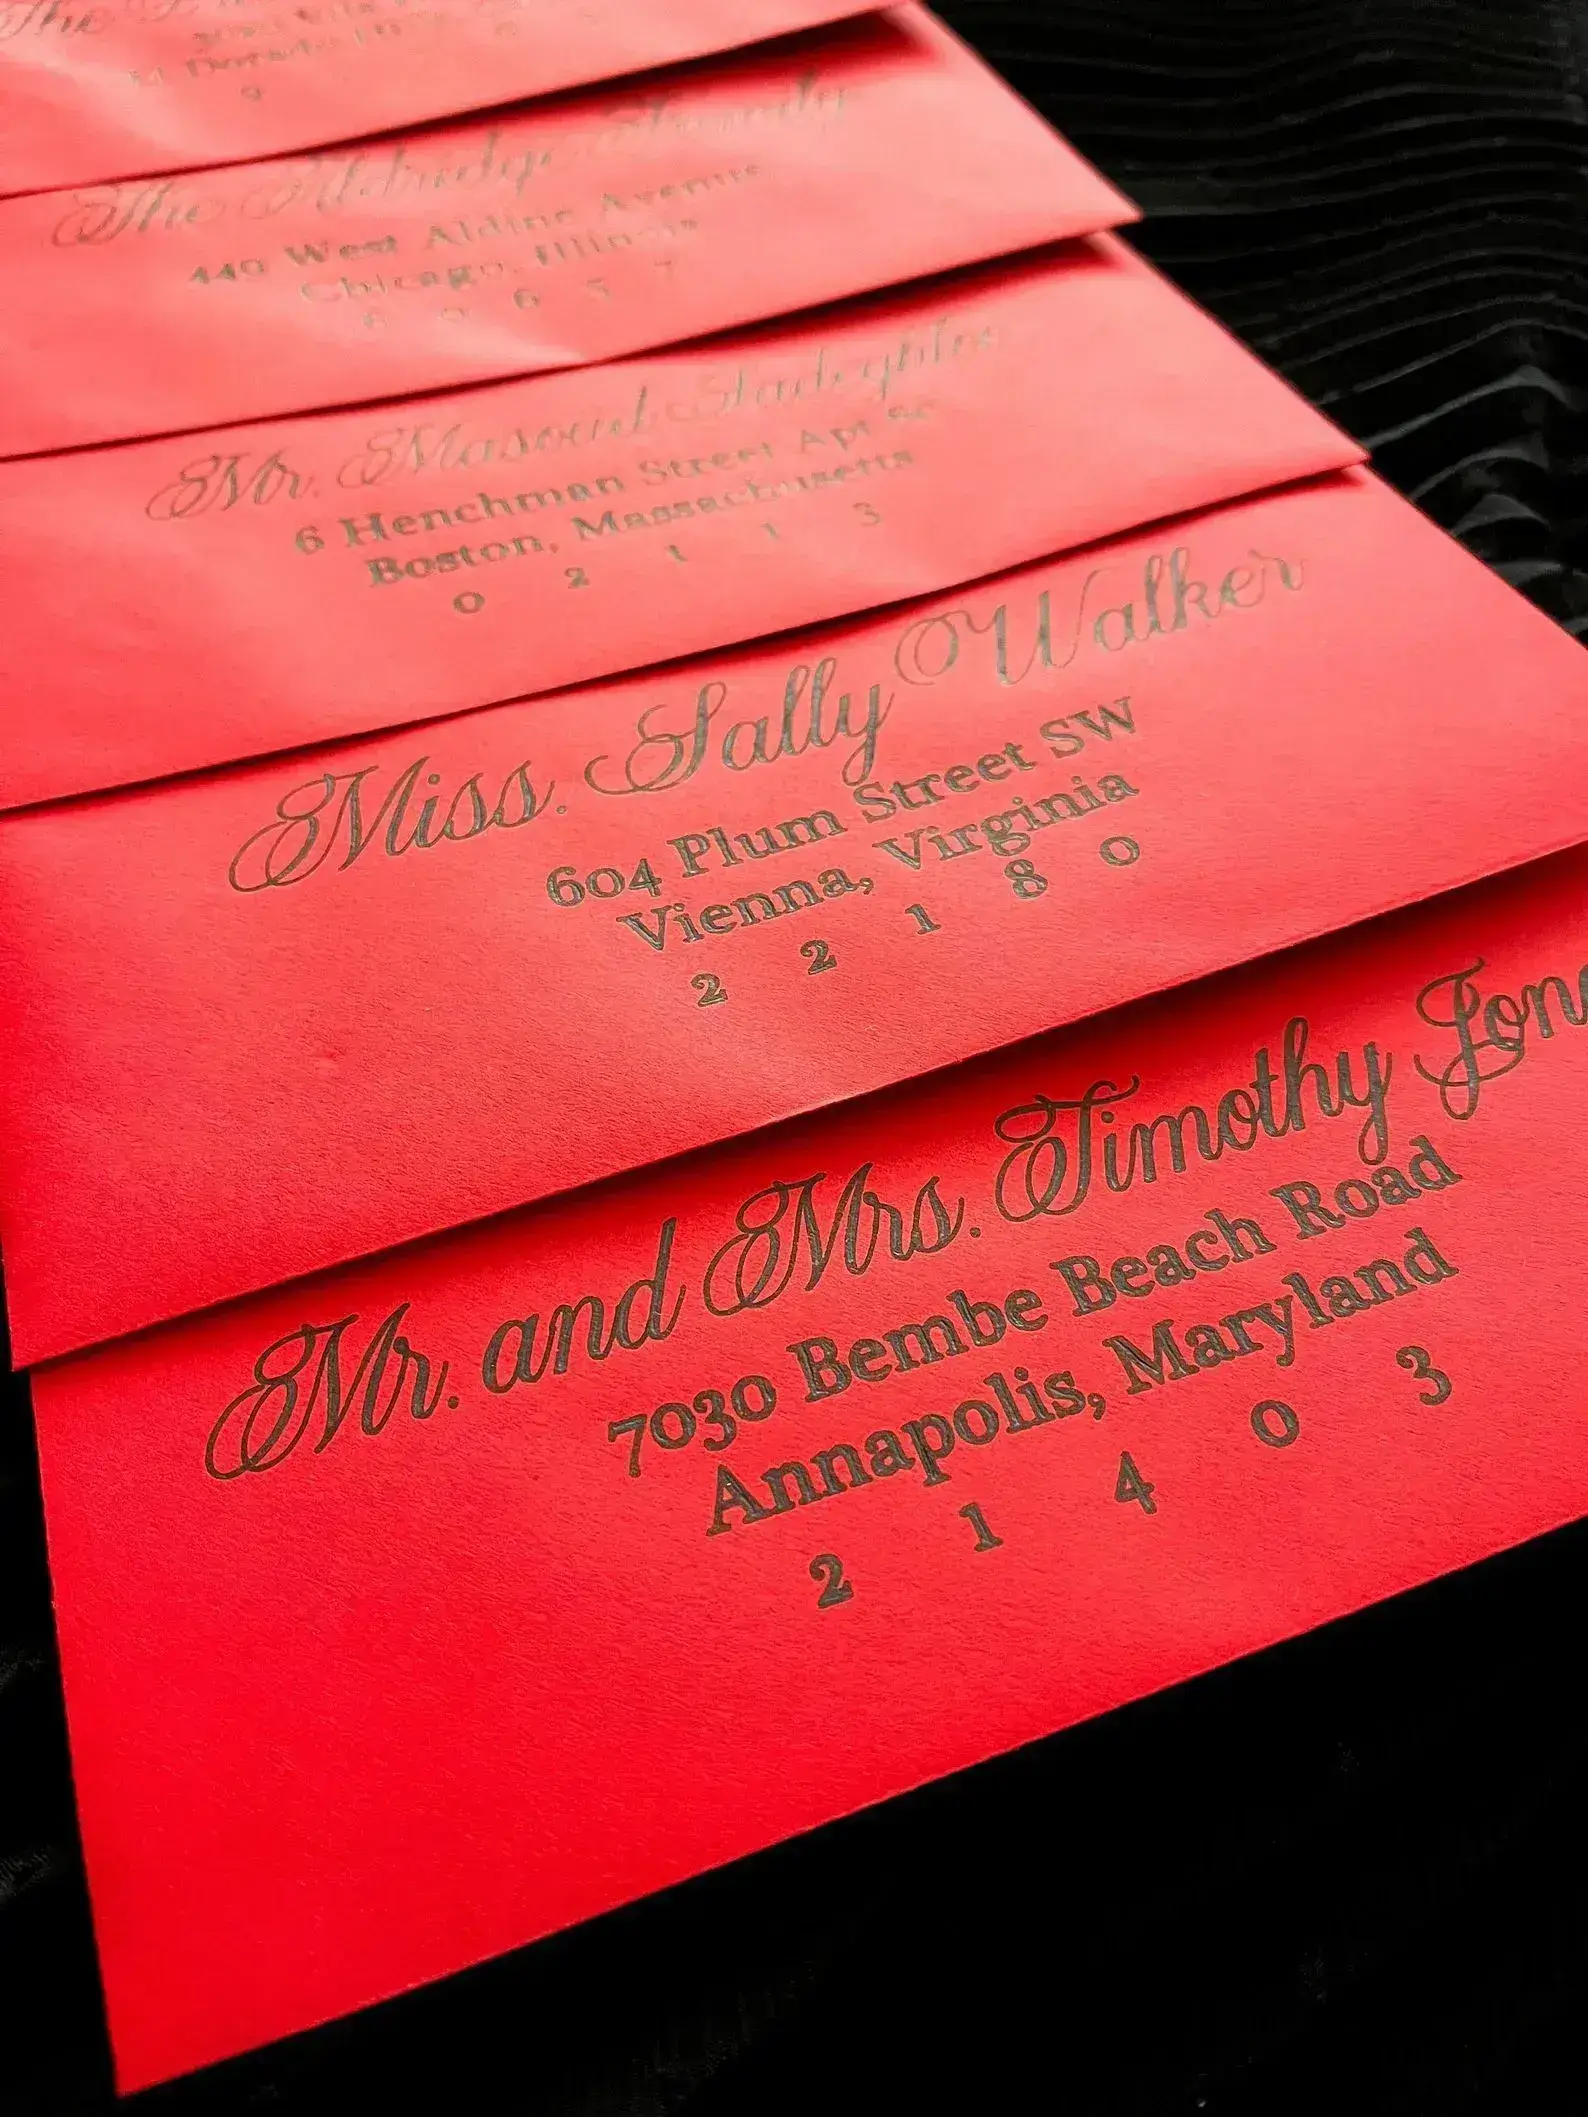 The
The Aldridge Family
440 West Aldine Avenue
Chicago, Illinois
6 0 6 5 7
Mr. Masoud
6 Henchman Street Apt
Boston, Massachusetts
0 2 1 1 3
Miss. Sally Walker
604 Plum Street SW
Vienna, Virginia
2 2 1 8 0
Mr. and Mrs. Timothy Jon
7030 Bembe Beach Road
Annapolis, Maryland
2 1 4 0 3